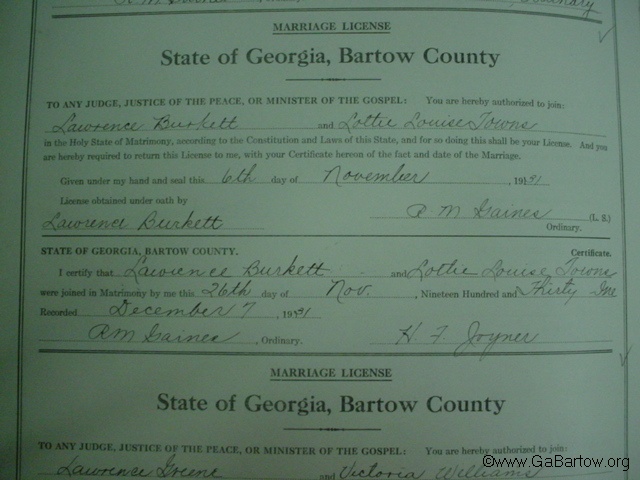 MARRIAGE LICENSE
State of Georgia, Bartow County
TO ANY JUDGE, JUSTICE OF THE PEACE, OR MINISTER OF THE GOSPEL: You are hereby authorized to join:
Lawrence Burkett and Lottie Louise Towns
in the Holy State of Matrimony, according to the Constitution and Laws of this State, and for so doing this shall be your License. And you
are hereby required to return this License to me, with your Certificate hereon of the fact and date of the Marriage.
Given under my hand and seal this 6th day of November, 1931
License obtained under oath by
Lawrence Burkett R M Gaines (L. S.)
Ordinary.
STATE OF GEORGIA, BARTOW COUNTY. Certificate.
I certify that Lawrence Burkett and Lottie Louise Towns
were joined in Matrimony by me this 26th day of Nov., Nineteen Hundred and Thirty One
Recorded December 7, 1931
RM Gaines, Ordinary. H. F. Joyner
MARRIAGE LICENSE
State of Georgia, Bartow County
TO ANY JUDGE, JUSTICE OF THE PEACE, OR MINISTER OF THE GOSPEL: You are hereby authorized to join:
Lawrence Greene and Victoria Williams
©www.GaBartow.org